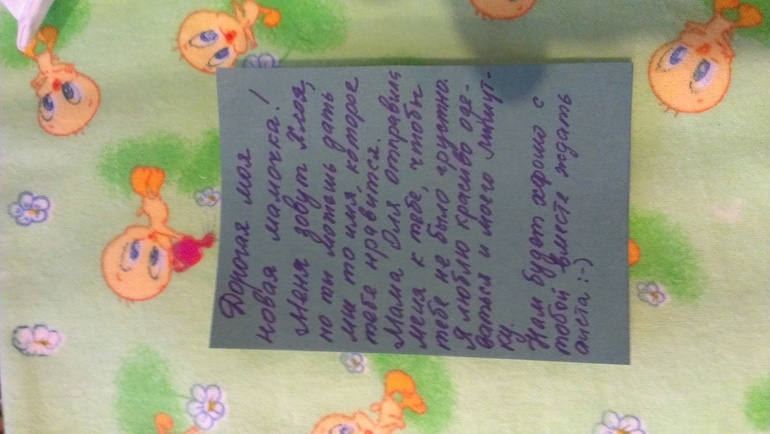 Дорогая моя
новая мамочка!
Меня зовут Хлоя,
но ты можешь дать
мне то имя, которое
тебе нравится.
Мама Оля отправила
меня к тебе, чтобы
тебе не было грустно.
Я люблю красиво оде-
ваться и моего
ку.
Нам будет офигенно с
тобой вместе ждать
аиста :-)